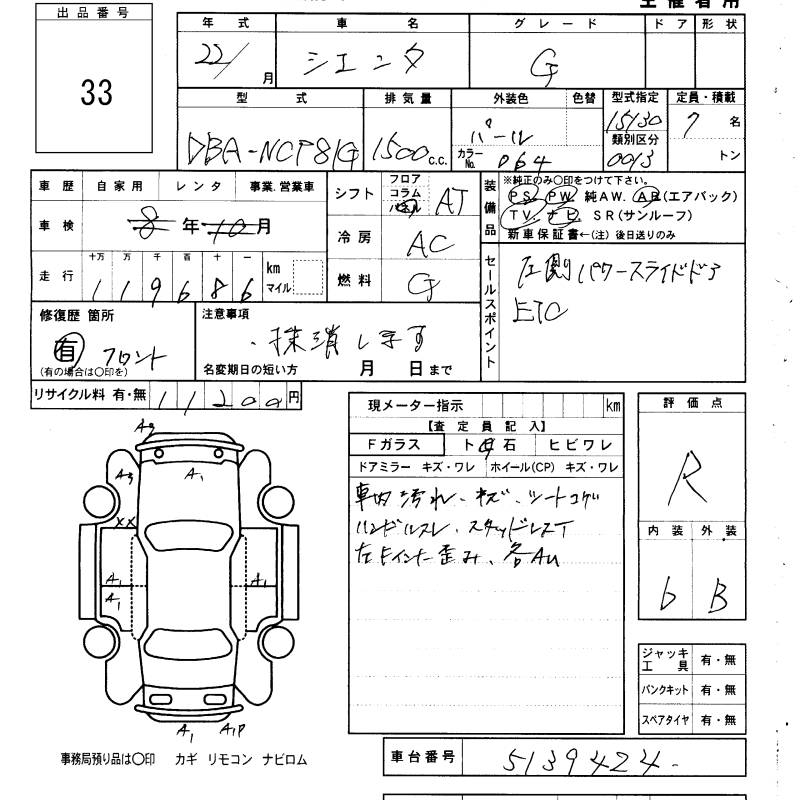 出品番号
33
年式 車名 グレード ドア 形状
22/ 月 シエンタ G
型式 排気量 外装色 色替 型式指定 定員・積載
DBA-NCP81G 1500 c.c. パール 15130 7 名
カラーNo. 064 類別区分 0013 トン
車歴 自家用 レンタ 事業.営業車
車検 8 年 10 月
走行 十万 万 千 百 十 一 km マイル
119686
シフト フロア コラム パネル AT
冷房 AC
燃料 G
装備品 ※純正のみ〇印をつけて下さい。
PS PW 純AW. AB(エアバック)
TV ナビ SR(サンルーフ)
新車保証書←(注) 後日送りのみ
セールスポイント 左側パワースライドドア
ETC
修復歴 箇所
有 フロント
(有の場合は〇印を)
注意事項
・抹消します
名変期日の短い方 月 日まで
リサイクル料 有・無 11200円
現メーター指示 km
【査定員記入】
Fガラス ト 石 ヒビワレ
ドアミラー キズ・ワレ ホイール(CP) キズ・ワレ
車内汚れ、キズ、シートコゲ
ハンドルスレ、スタッドレスT
歪み、各AU
評価点
R
内装 外装
b B
ジャッキ工具 有・無
パンクキット 有・無
スペアタイヤ 有・無
A1
XX
A1
A1
A1
A1
A1P
事務局預り品は〇印 カギ リモコン ナビロム
車台番号 5139424